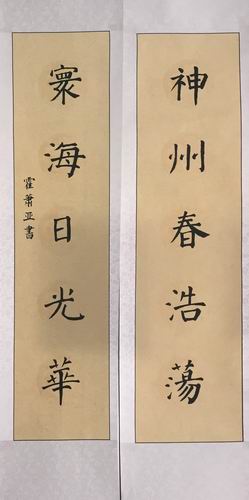 神州春浩蕩
寰海日光華
霍蕭亚書